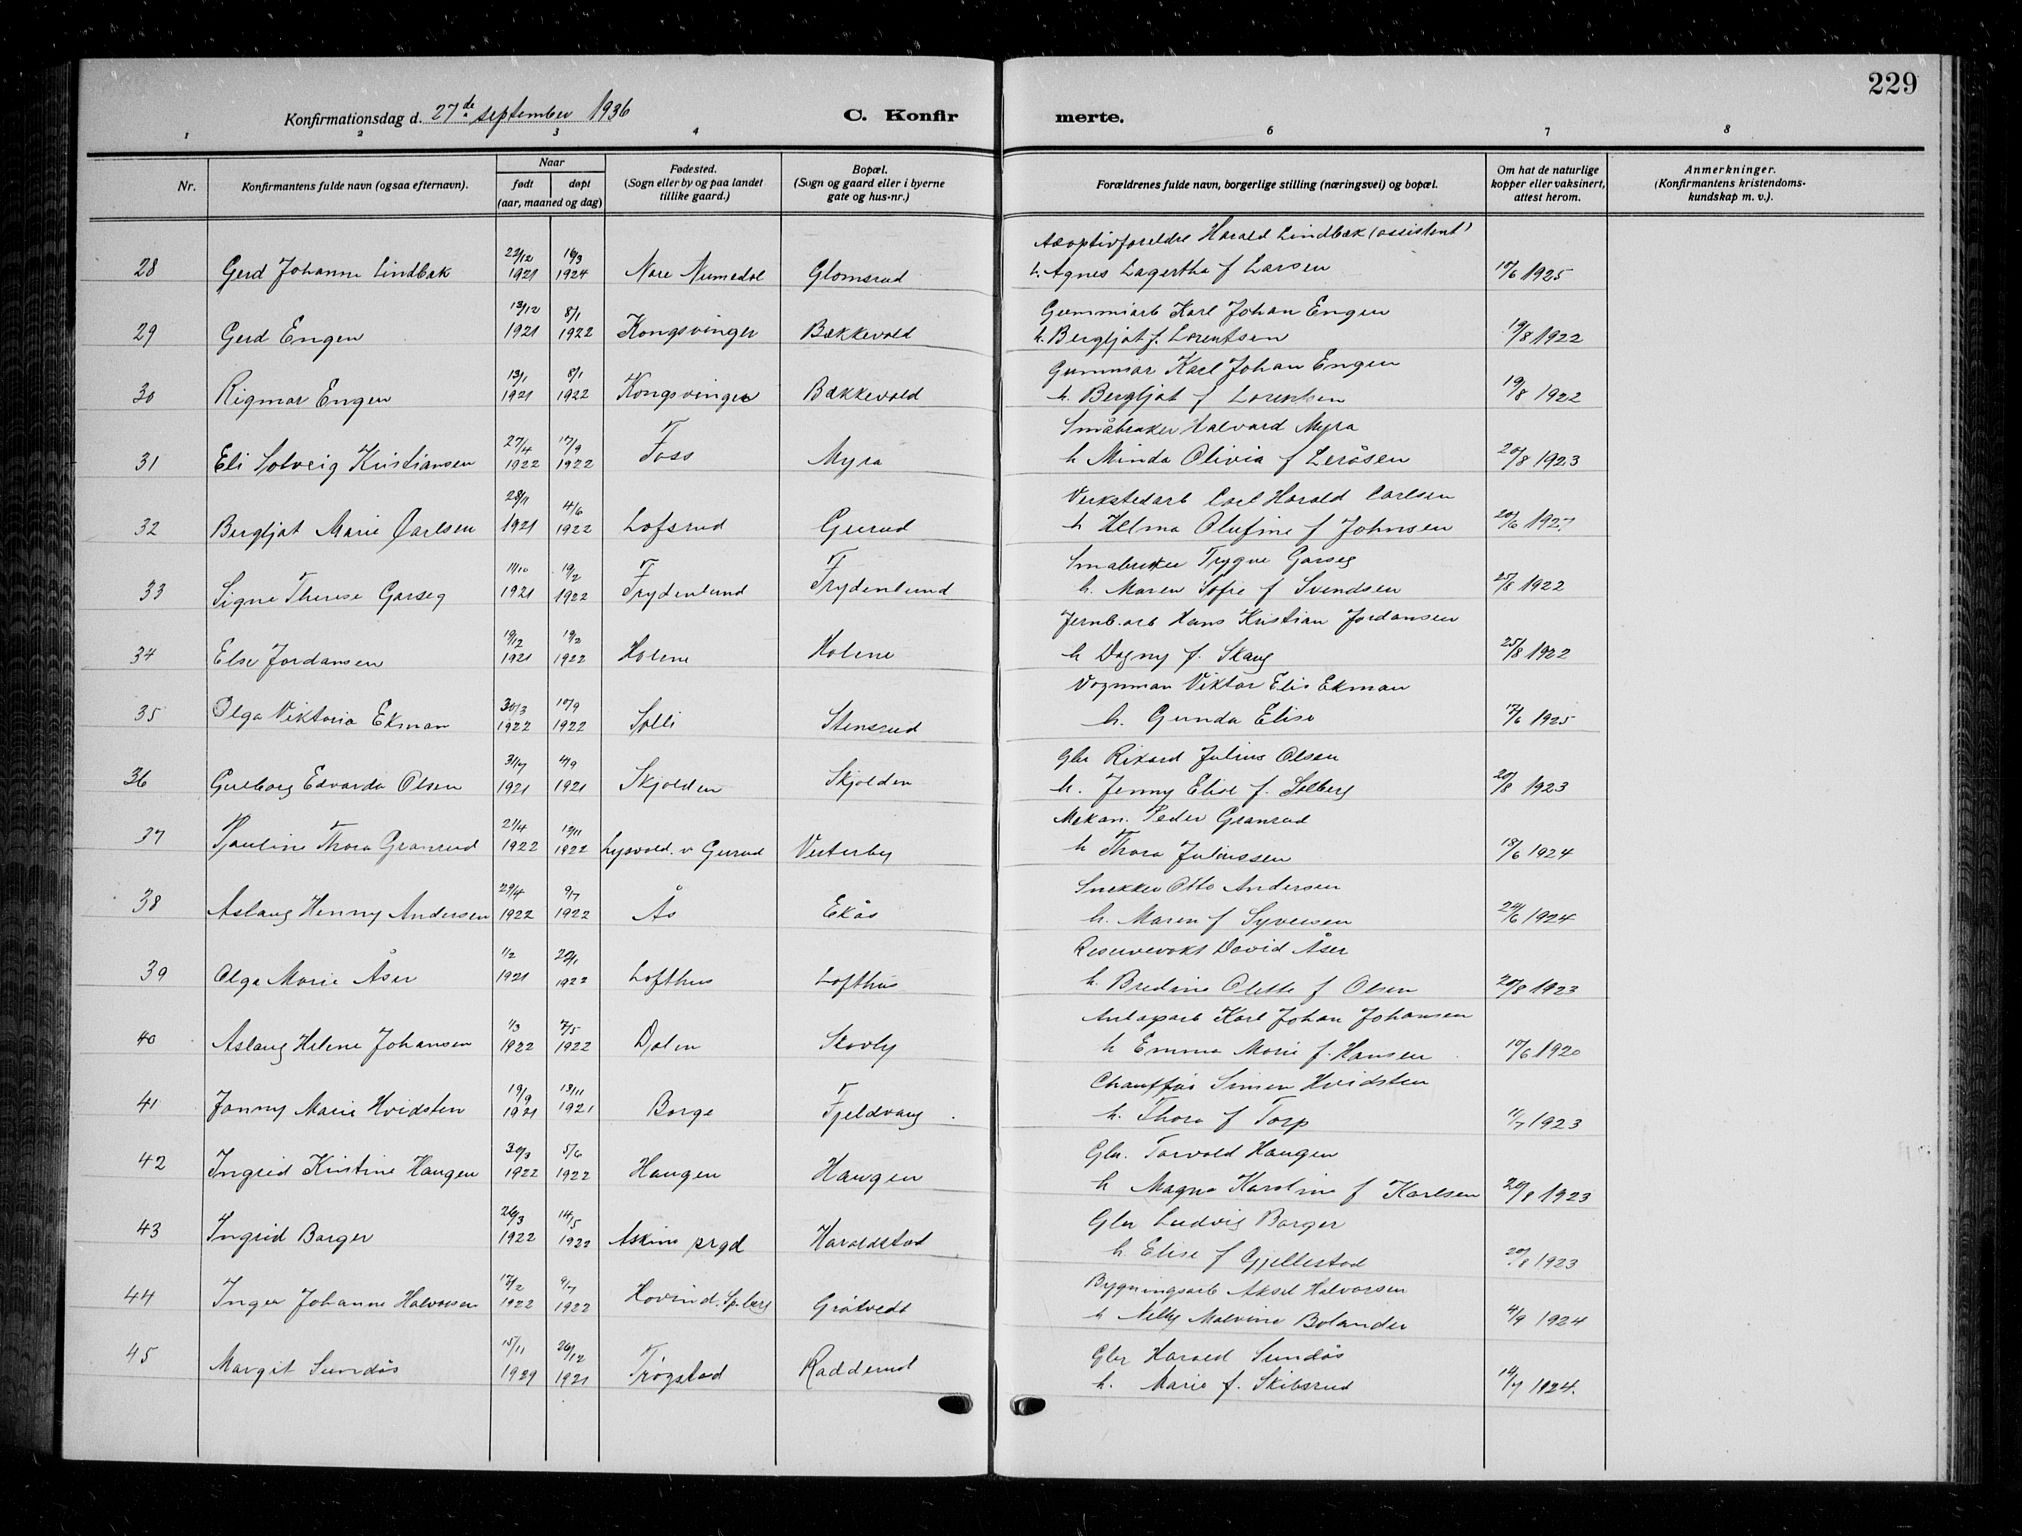 229
Konfirmationsdag d. 27de september 1936
C. Konfirmerte.
1 2 3 4 5 6 7 8
Nr.
Konfirmantens fulde navn (ogsaa efternavn).
Naar
født døpt
(aar, maaned og dag)
Fødested.
(Sogn eller by og paa landet
tillike gaard.)
Bopæl.
(Sogn og gaard eller i byerne
gate og hus-nr.)
Forældrenes fulde navn, borgerlige stilling (næringsvei) og bopæl.
Om hat de naturlige
kopper eller vaksinert,
attest herom.
Anmerkninger.
(Konfirmantens kristendoms-
kundskap m. v.).
22/12 16/3 Adoptivforeldre Harald Lindbæk (assistent)
28 Gerd Johanne Lindbæk 1921 1924 Nore Numedal Glomsrud h. Agnes Lagertha f Larsen 10/6 1925
13/12 8/1 Gummiarb Karl Johan Engen
29 Gerd Engen 1921 1922 Kongsvinger Bækkevold h. Bergljot f. Lorentsen 19/8 1922
13/1 8/1 Gummiar Karl Johan Engen
30 Rigmor Engen 1921 1922 Kongsvinger Bækkevold h. Bergljot f Lorentsen 19/8 1922
27/4 17/9 Småbruker Halvard Myra
31 Eli Solveig Kristiansen 1922 1922 Foss Myra h Minda Olivia f Leråsen 20/8 1923
28/11 4/6 Verkstedarb Carl Harald Carlsen
32 Bergljot Marie Carlsen 1921 1922 Lofsrud Gurud h Helma Olufine f Johnsen 20/6 1927
11/10 19/2 Småbruker Trygve Garseg
33 Signe Therese Garseg 1921 1922 Frydenlund Frydenlund h. Maren Sofie f Svendsen 25/8 1922
19/12 19/2 Jernb.arb Hans Kristian Jordansen
34 Else Jordansen 1921 1922 Holene Holene h Dagny f. Skaug 25/8 1922
30/3 10/9 Vognman Viktor Elis Ekman
35 Olga Viktoria Ekman 1922 1922 Solli Stensrud h. Gunda Elise 17/6 1925
31/7 4/9 Gbr Rikard Julius Olsen
36 Gulborg Edvarda Olsen 1921 1921 Skjolden Skjolden h. Jenny Elise f. Solberg 20/8 1923
21/4 12/11 Mekan. Peder Granrud
37 Pauline Thora Granrud 1922 1922 Lysvold. v Gurud Vesterby h Thora Juliussen 18/6 1924
29/4 9/7 Snekker Otto Andersen
38 Aslaug Henny Andersen 1922 1922 Ås Ekås h. Maren f Syversen 24/6 1924
1/2 22/1 Reservevokt David Åser
39 Olga Marie Åser 1921 1922 Lofthus Lofthus h. Bredine Olette f Olsen 20/8 1923
1/3 7/5 Karl Johan Johansen
40 Aslaug Helene Johansen 1922 1922 Dalen Skovly h Emma Marie f. Hansen 10/6 1920
19/9 13/11 Chauffør Simen Hvidsten
41 Jenny Marie Hvidsten 1921 1921 Borge Fjeldvang h. Thora f Torp 11/7 1923
30/3 5/6 Gbr. Torvald Haugen
42 Ingrid Kristine Haugen 1922 1922 Haugen Haugen h Magna Karoline f Karlsen 20/8 1923
26/3 14/5 Gbr Ludvig Borger
43 Ingrid Borger 1922 1922 Askim prgd Haraldstad h Elise f Gjellestad 20/8 1923
17/2 9/7 Bygningsarb Aksel Halvorsen
44 Inger Johanne Halvorsen 1922 1922 Hovin d. Sp.berg Grøtvedt h Nelly Malvine Bolander 4/9 1924
15/11 26/12 Gbr Harald Sundås
45 Margit Sundås 1921 1921 Trøgstad Radderud h. Marie f. Skibsrud 14/7 1924.